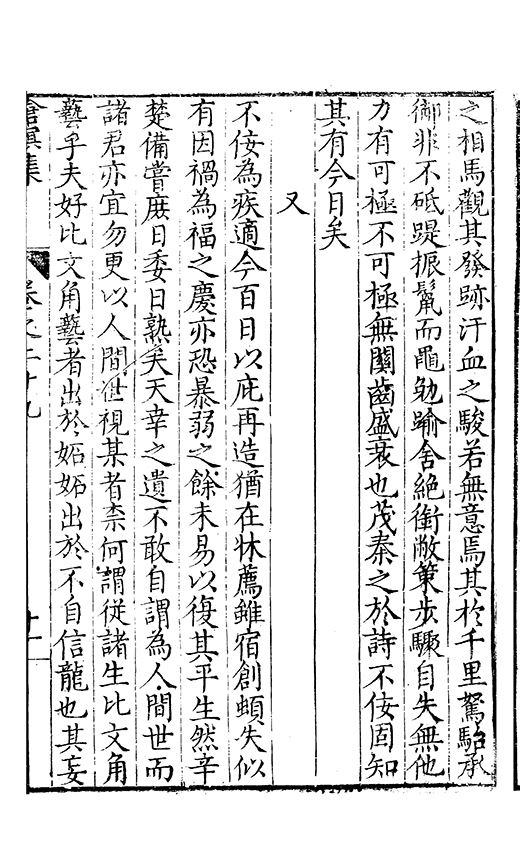 之相馬觀其發跡汗血之駿若無意焉其於千里駑駘承
御非不砥踶振鬣而黽勉踰舍絕銜敝策步驟自失無他
力有可極不可極無關齒盛衰也茂秦之於詩不佞固知
其有今日矣
又
不佞為疾適今百日以庇再造猶在牀薦雖宿創頓失似
有因禍為福之慶亦恐暴弱之餘未易以復其平生然辛
楚備嘗庶日委日熟矣天幸之遺不敢自謂為人間世而
諸君亦宜勿更以人間世視某者柰何謂從諸生比文角
藝乎夫好比文角藝者出於妬妬出於不自信龍也其妄
滄溟集
卷之二十九
十一